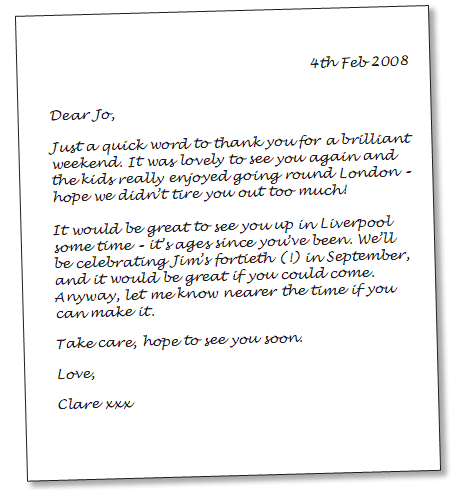 4th Feb 2008
Dear Jo,
Just a quick word to thank you for a brilliant
weekend. It was lovely to see you again and
the kids really enjoyed going round London –
hope we didn't tire you out too much!
It would be great to see you up in Liverpool
some time – it's ages since you've been. We'll
be celebrating Jim's fortieth (!) in September,
and it would be great if you could come.
Anyway, let me know nearer the time if you
can make it.
Take care, hope to see you soon.
Love,
Clare xxx